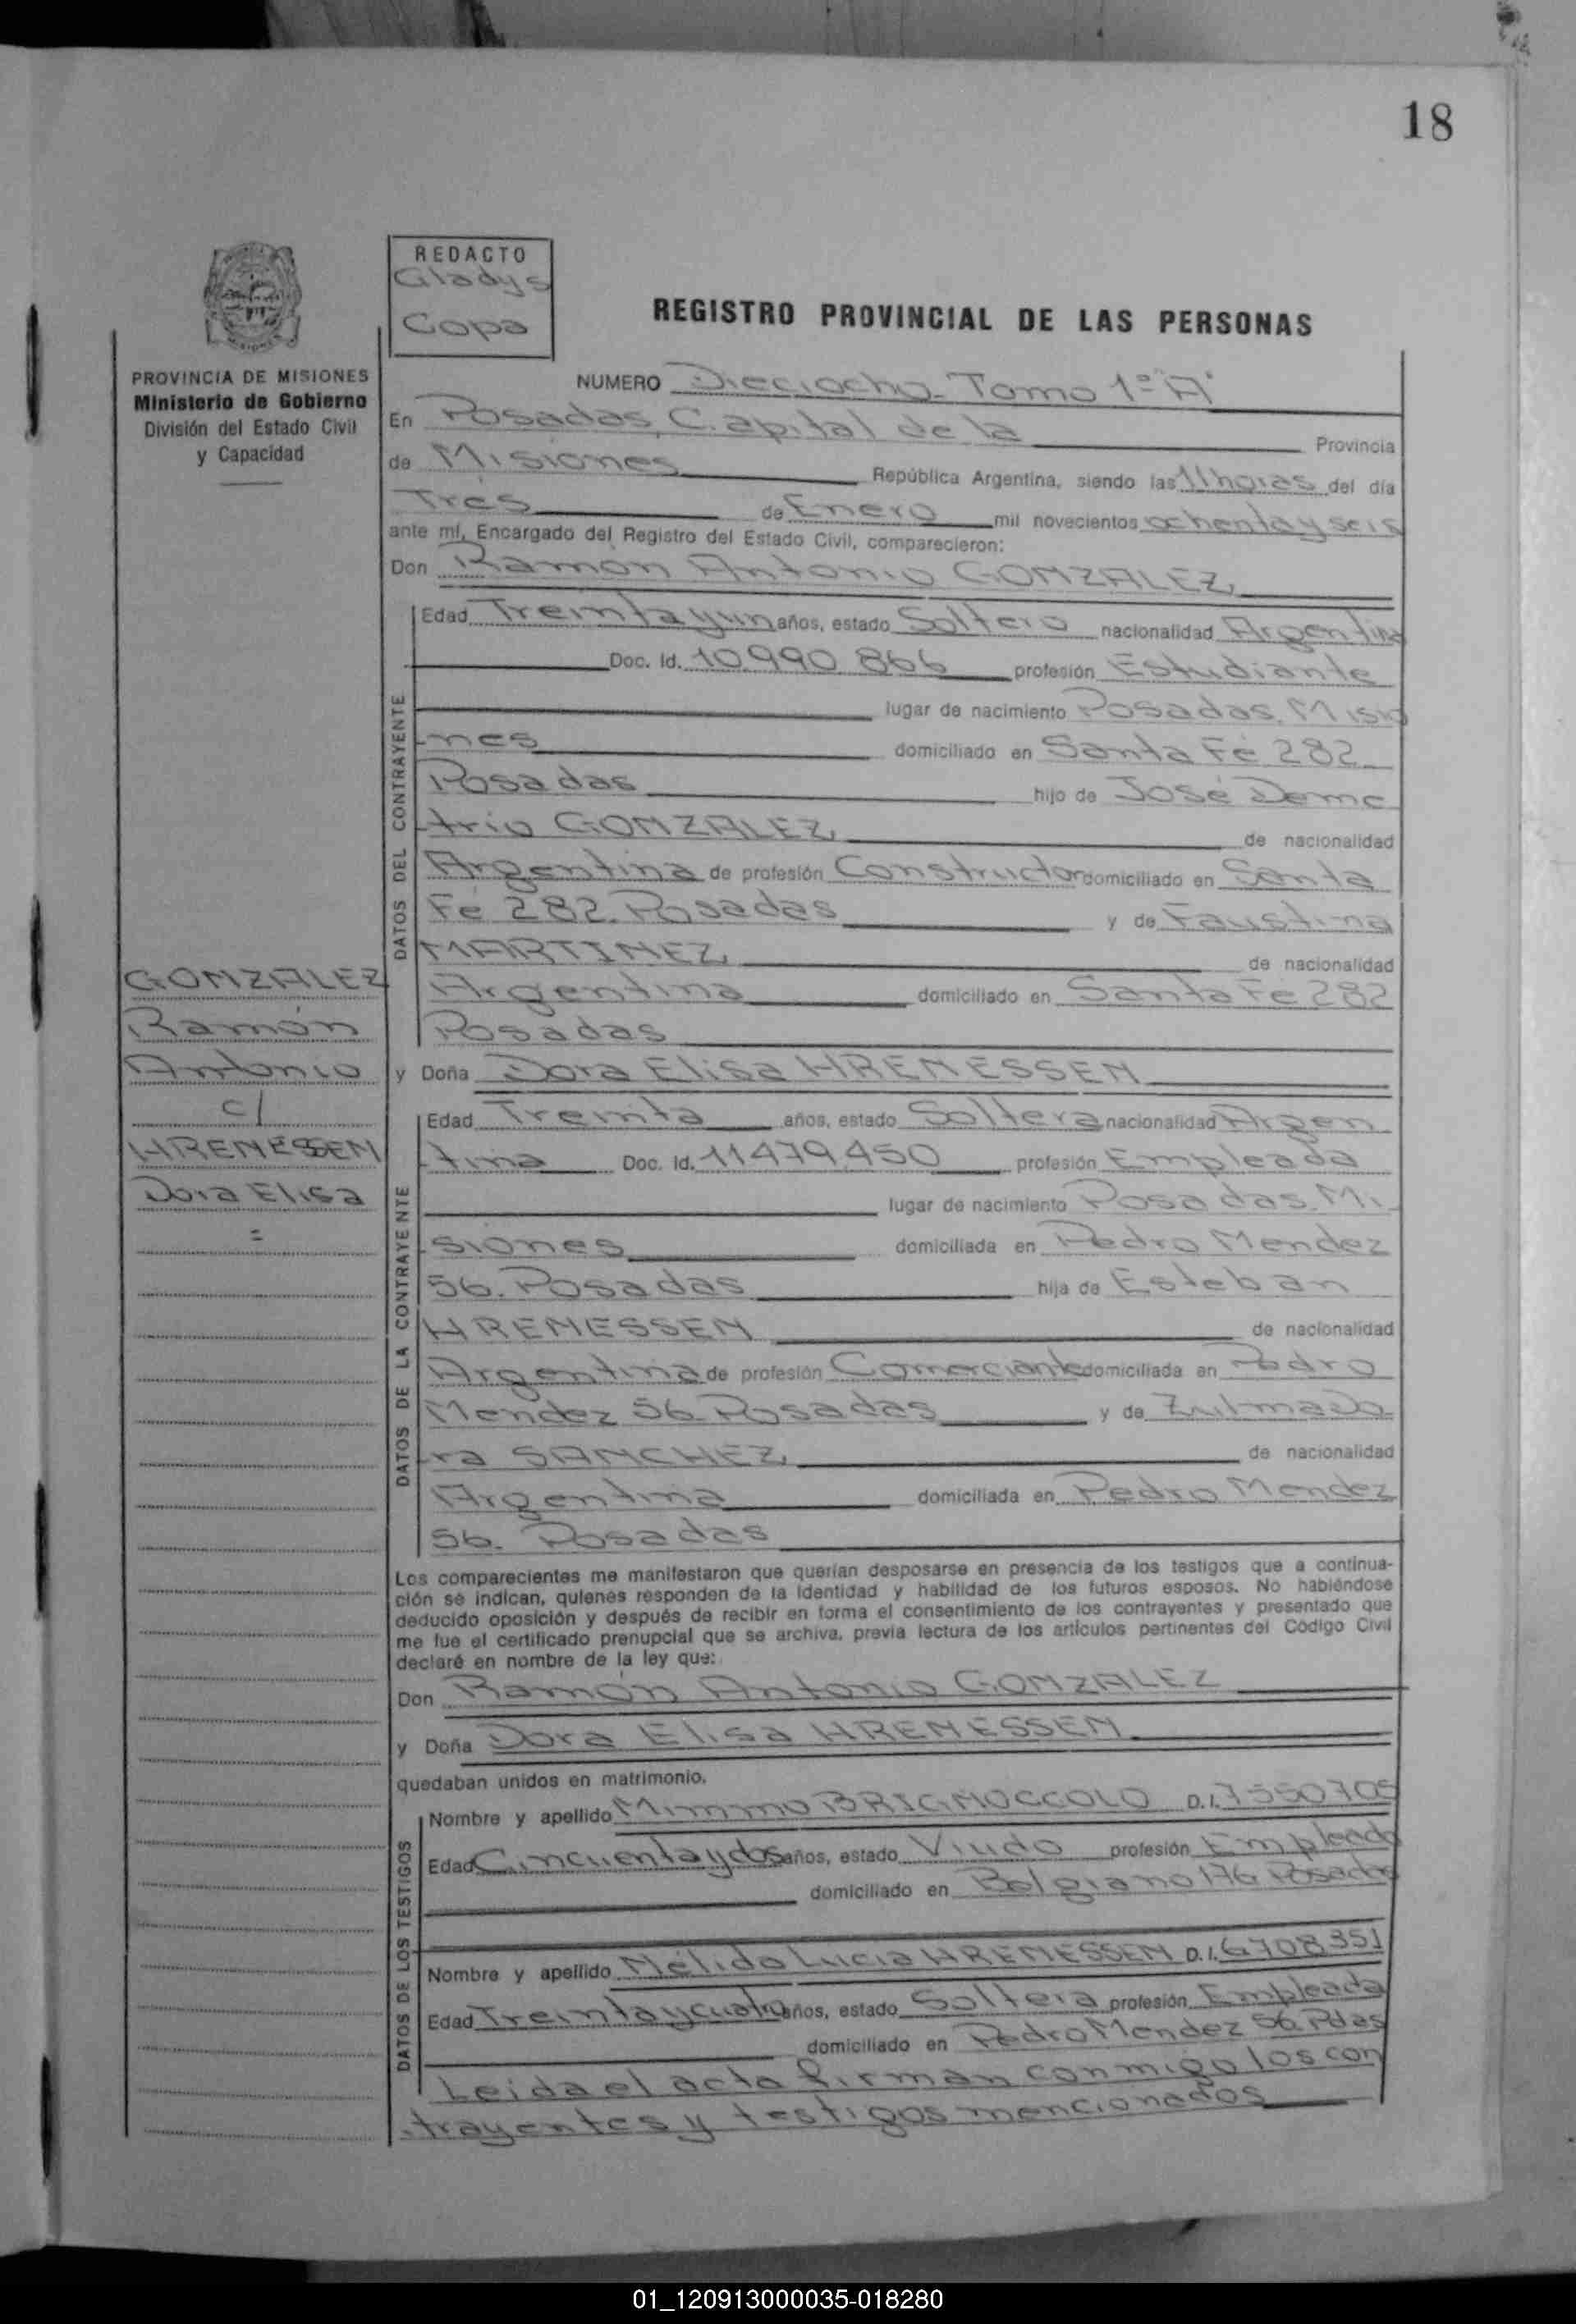 18
REDACTO
Gladys
Copa
REGISTRO PROVINCIAL DE LAS PERSONAS
PROVINCIA DE MISIONES
Ministerio de Gobierno
División del Estado Civil
y Capacidad
NUMERO Dieciocho - Tomo 1º "A"
En Posadas, Capital de la Provincia
de Misiones República Argentina, siendo las 11 horas del día
Tres de Enero mil novecientos ochenta y seis
ante mí, Encargado del Registro del Estado Civil, comparecieron:
Don Ramón Antonio GONZALEZ,
DATOS DEL CONTRAYENTE
Edad Treinta y un años, estado Soltero nacionalidad Argentina
Doc. Id. 10.990.866 profesión Estudiante
lugar de nacimiento Posadas. Misio
nes domiciliado en Santa Fé 282
Posadas hijo de José Deme
trio GONZALEZ, de nacionalidad
Argentina de profesión Constructor domiciliado en Santa
Fé 282. Posadas y de Faustina
MARTINEZ, de nacionalidad
Argentina domiciliado en Santa Fé 282
Posadas
GONZALEZ
Ramón
Antonio
c/
HRENESSEN
Dora Elisa
=
y Doña Dora Elisa HRENESSEN
DATOS DE LA CONTRAYENTE
Edad Treinta años, estado Soltera nacionalidad Argen
tina Doc. Id. 11479.450 profesión Empleada
lugar de nacimiento Posadas. Mi
siones domiciliada en Pedro Mendez
56. Posadas hija de Esteban
HRENESSEN de nacionalidad
Argentina de profesión Comerciante domiciliada en Pedro
Mendez 56. Posadas y de Zulma Do
ra SANCHEZ, de nacionalidad
Argentina domiciliada en Pedro Mendez
56. Posadas
Los comparecientes me manifestaron que querían desposarse en presencia de los testigos que a continua-
ción se indican, quienes responden de la identidad y habilidad de los futuros esposos. No habiéndose
deducido oposición y después de recibir en forma el consentimiento de los contrayentes y presentado que
me fue el certificado prenupcial que se archiva, previa lectura de los artículos pertinentes del Código Civil
declaré en nombre de la ley que:
Don Ramón Antonio GONZALEZ
y Doña Dora Elisa HRENESSEN
quedaban unidos en matrimonio.
DATOS DE LOS TESTIGOS
Nombre y apellido Mimmo BRIGNOCCOLO D.I. 7550705
Edad Cincuenta y dos años, estado Viudo profesión Empleado
domiciliado en Belgrano 176 Posadas
Nombre y apellido Mélida Lucia HRENESSEN D.I. 6708351
Edad Treinta y cuatro años, estado Soltera profesión Empleada
domiciliado en Pedro Mendez 56. Pdas
Leida el acta firman conmigo los con
trayentes y testigos mencionados
01_120913000035-018280